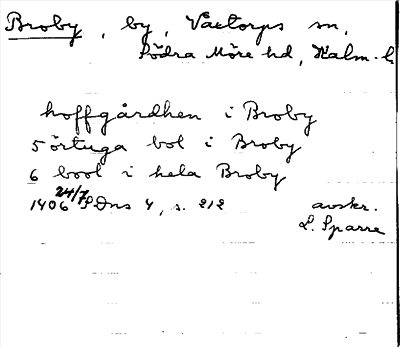 Broby, by, Vactorps sn,
Södra Möre hd, Kalm. l.
hoffgårdhen i Broby
5 örtuga bol i Broby
6 bool i hela Broby
1406 24/7 SDns 4, s. 212 avskr.
L. Sparre